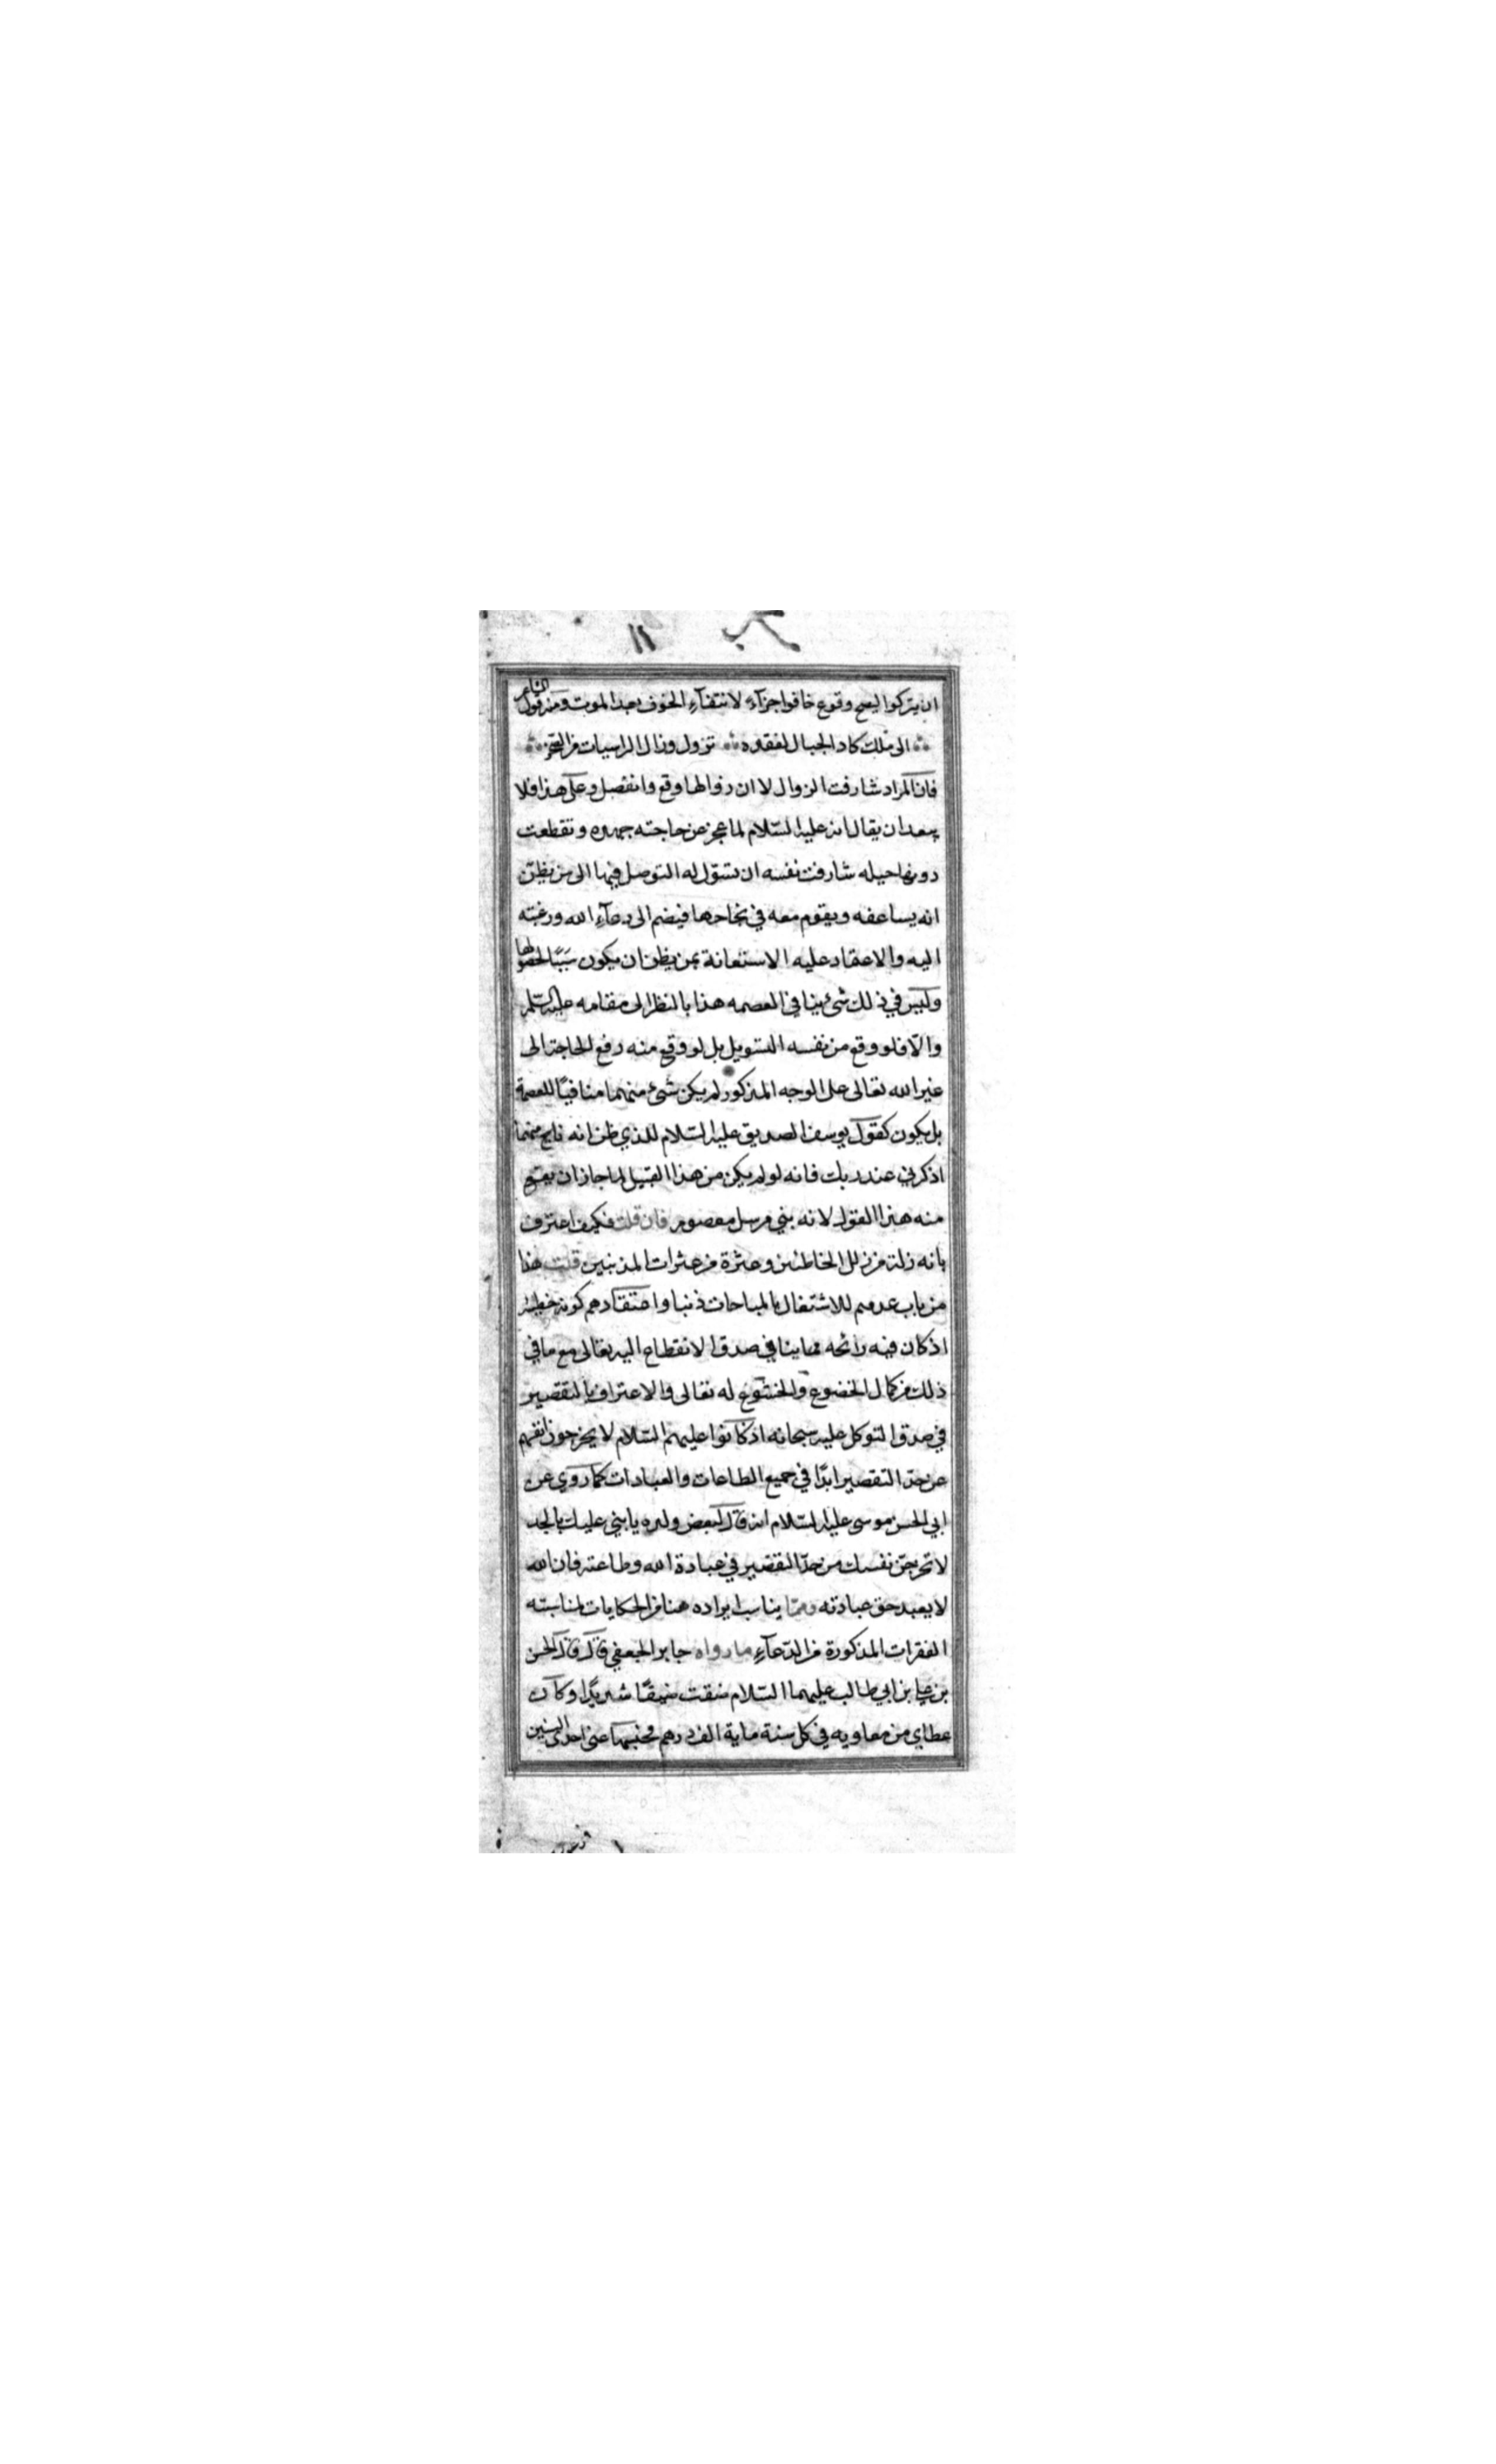 ان يتركوا ليصح وقوع خافوا جزآء لانتفآء الخوف بعد الموت ومنه قول الشاعر
الى ملك كاد الجبال لفقده تزول وزال الراسيات من الصخر
فان المراد شارفت الزوال لا ان زوالها وقع وانفصل وعلى هذا فلا
يبعد ان يقال انه عليه السّلام لما عجز عن حاجته جهده وتقطعت
دونها حيله شارفت نفسه ان تسوّل له التوصل فيها الى من يظن
انه يساعفه ويقوم معه في نجاحها فيضم الى دعآء الله ورغبته
اليه والاعتماد عليه الاستعانة بمن يظن ان يكون سَببًا لحصولها
وليس في ذلك شئ ينافي العصمه هذا بالنظر الى مقامه عليه السّلم
والّا فلو وقع من نفسه التسويل بل لو وقع منه رفع الحاجة الى
غير الله تعالى على الوجه المذكور لم يكن شئ منهما منافيًا للعصمة
بل يكون كقول يوسف الصديق عليه السّلام للذي ظن انه ناج منهما
اذكرني عند ربك فانه لو لم يكن من هذا القبيل لما جاز ان يقع
منه هذا القول لانه نبي مرسل معصوم فان قلت فكيف اعترف
بانه زلة من زلل الخاطئين وعثرة من عثرات المذنبين قلت هذا
من باب عدهم للاشتغال بالمباحات ذنبا واعتقادهم كونه خطيئة
اذ كان فيه رائحه مما ينافي صدق الانقطاع اليه تعالى مع ما في
ذلك من كمال الخضوع والخشوع له تعالى والاعتراف بالتقصير
في صدق التوكل عليه سبحانه اذ كانوا عليهم السّلام لا يخرجون انفسهم
عن حدّ التقصير ابدًا في جميع الطاعات والعبادات كما روي عن
ابي الحسن موسى عليه السّلام انه قال لبعض ولده يا بني عليك بالجد
لا تخرجنّ نفسك من حدّ التقصير في عبادة الله وطاعته فان الله
لا يعبد حق عبادته وممّا يناسب ايراده هنا من الحكايات لمناسبته
الفقرات المذكورة من الدّعآء ما رواه جابر الجعفي قال قال الحسن
بن علي بن ابي طالب عليهما السّلام ضقت ضيقًا شديدًا وكان
عطاي من معاويه في كل سنة ماية الف درهم فحبسها عني احدى السنين